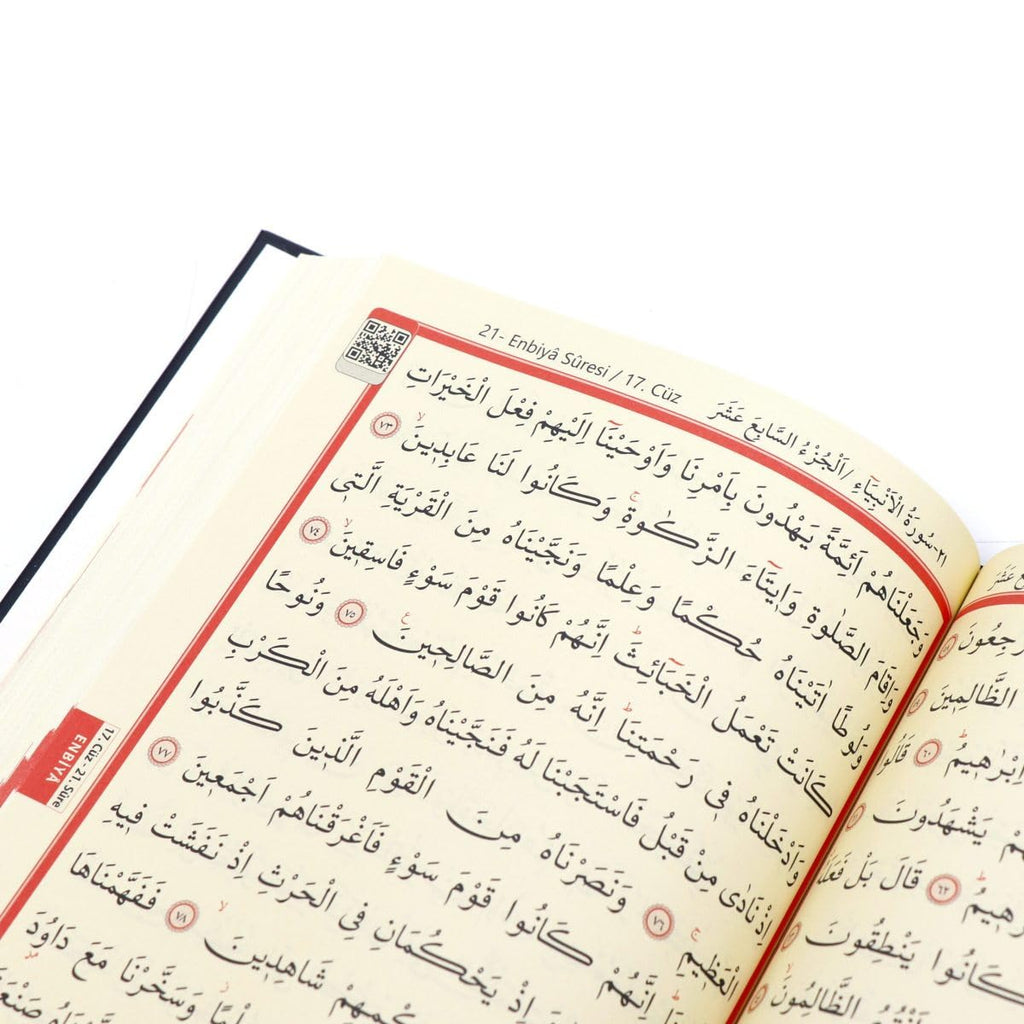 21- Enbiyâ Sûresi / 17. Cüz
٢١-سُورَةُ الْاَنْبِيَاءِ /اَلْجُزْءُ السَّابِعَ عَشَرَ
وَجَعَلْنَاهُمْ اَئِمَّةً يَهْدُونَ بِاَمْرِنَا وَاَوْحَيْنَٓا اِلَيْهِمْ فِعْلَ الْخَيْرَاتِ
وَاِقَامَ الصَّلٰوةِ وَا۪يتَٓاءَ الزَّكٰوةِۚ وَكَانُوا لَنَا عَابِد۪ينَۙ ٧٣
وَلُوطًا اٰتَيْنَاهُ حُكْمًا وَعِلْمًا وَنَجَّيْنَاهُ مِنَ الْقَرْيَةِ الَّت۪ي
كَانَتْ تَعْمَلُ الْخَبَٓائِثَۜ اِنَّهُمْ كَانُوا قَوْمَ سَوْءٍ فَاسِق۪ينَۙ ٧٤
وَاَدْخَلْنَاهُ ف۪ي رَحْمَتِنَاۜ اِنَّهُ مِنَ الصَّالِح۪ينَۚ ٧٥ وَنُوحًا
اِذْ نَادٰى مِنْ قَبْلُ فَاسْتَجَبْنَا لَهُ فَنَجَّيْنَاهُ وَاَهْلَهُ مِنَ الْكَرْبِ
الْعَظ۪يمِۚ ٧٦ وَنَصَرْنَاهُ مِنَ الْقَوْمِ الَّذ۪ينَ كَذَّبُوا
اِنَّهُمْ كَانُوا قَوْمَ سَوْءٍ فَاَغْرَقْنَاهُمْ اَجْمَع۪ينَ ٧٧
اِذْ يَحْكُمَانِ فِي الْحَرْثِ اِذْ نَفَشَتْ ف۪يهِ
شَاهِد۪ينَۙ ٧٨ فَفَهَّمْنَاهَا
وَسَخَّرْنَا مَعَ دَاوُ۫دَ
17. Cüz - 21. Sûre
ENBİYÂ
الظَّالِم۪ينَ
٦٠ قَالُوا
يَشْهَدُونَ
٦٢ قَالَ بَلْ
كَانُوا يَنْطِقُونَ
الظَّالِمُونَۙ